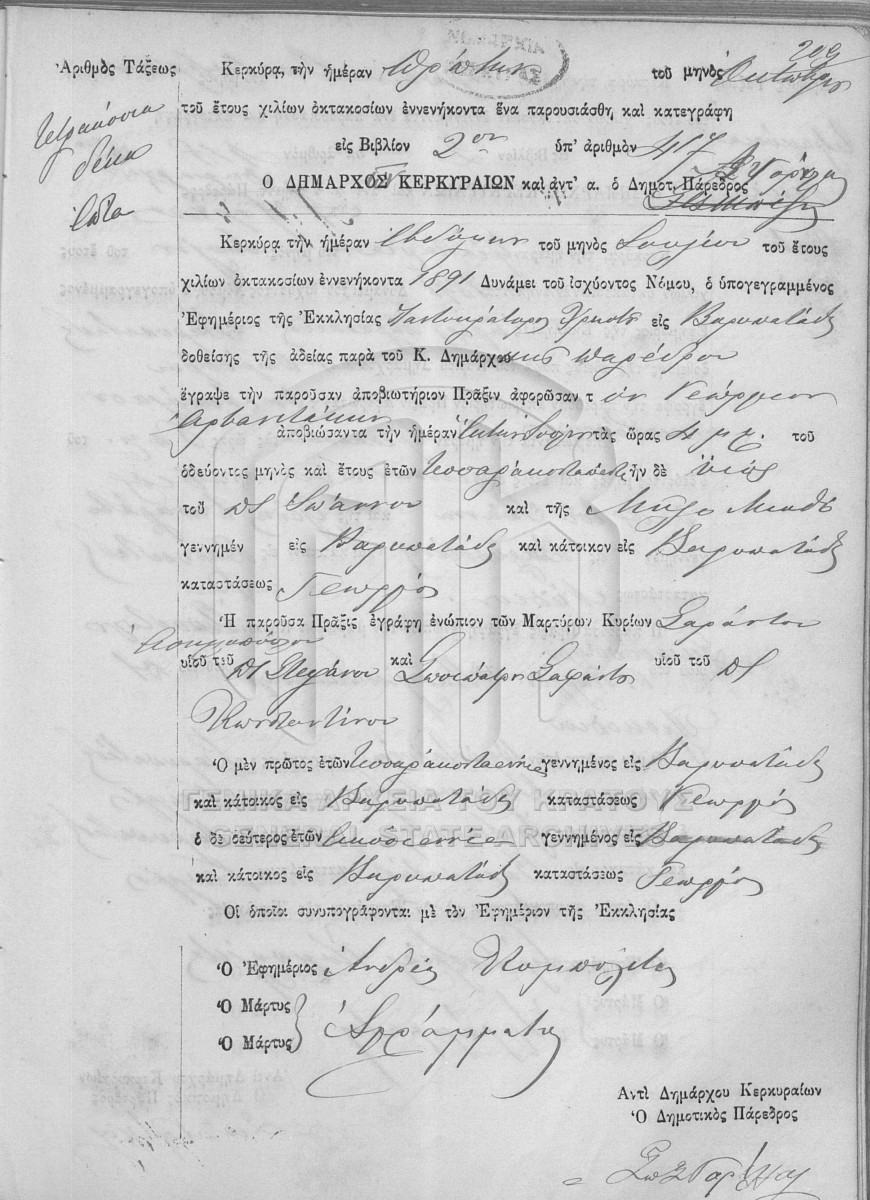 209
Ἀριθμὸς Τάξεως
Κερκύρᾳ, τὴν ἡμέραν πρώτην τοῦ μηνὸς Ὀκτωβρίου
τοῦ ἔτους χιλίων ὀκτακοσίων ἐννενήκοντα ἕνα παρουσιάσθη καὶ κατεγράφη
Τετρακόσια
δέκα
ἑπτὰ
εἰς Βιβλίον 2ον ὑπ' ἀριθμὸν 417
Ὁ ΔΗΜΑΡΧΟΣ ΚΕΡΚΥΡΑΙΩΝ καὶ ἀντ' α. ὁ Δημοτ. Πάρεδρος
Κερκύρᾳ τὴν ἡμέραν ἑβδόμην τοῦ μηνὸς Ἰουλίου τοῦ ἔτους
χιλίων ὀκτακοσίων ἐννενήκοντα 1891 Δυνάμει τοῦ ἰσχύοντος Νόμου, ὁ ὑπογεγραμμένος
Ἐφημέριος τῆς Ἐκκλησίας Παντοκράτορος εἰς Βαρυπατάδες
δοθείσης τῆς ἀδείας παρὰ τοῦ Κ. Δημάρχου παρέδρου
ἔγραψε τὴν παροῦσαν ἀποβιωτήριον Πρᾶξιν ἀφορῶσαν τ ὸν Γεώργιον
Ἀρβανιτάκην
ἀποβιώσαντα τὴν ἡμέραν ἕκτην Ἰουλίου τὰς ὥρας 4 μ.μ. τοῦ
ὁδεύοντος μηνὸς καὶ ἔτους ἐτῶν ἦν δὲ υἱὸς
τοῦ Ἰωάννου καὶ τῆς
γεννημέν εἰς Βαρυπατάδες καὶ κάτοικον εἰς Βαρυπατάδες
καταστάσεως Γεωργός
Ἡ παροῦσα Πρᾶξις ἐγράφη ἐνώπιον τῶν Μαρτύρων Κυρίων Σαράντου
Ἀσημοπούλου
υἱοῦ τοῦ Στεφάνου καὶ υἱοῦ τοῦ
Κωνσταντίνου
Ὁ μὲν πρῶτος ἐτῶν γεννημένος εἰς Βαρυπατάδες
καὶ κάτοικος εἰς Βαρυπατάδες καταστάσεως Γεωργός
ΓΕΝΙΚΑ ΑΡΧΕΙΑ ΤΟΥ ΚΡΑΤΟΥΣ
GENERAL STATE ARCHIVES
ὁ δὲ δεύτερος ἐτῶν γεννημένος εἰς Βαρυπατάδες
καὶ κάτοικος εἰς Βαρυπατάδες καταστάσεως Γεωργός
Οἱ ὁποῖοι συνυπογράφονται μὲ τὸν Ἐφημέριον τῆς Ἐκκλησίας
Ὁ Ἐφημέριος Ἀνδρέας
Ὁ Μάρτυς
Ὁ Μάρτυς Ἀγράμματοι
Ἀντὶ Δημάρχου Κερκυραίων
Ὁ Δημοτικὸς Πάρεδρος